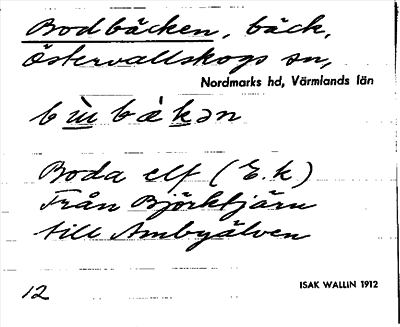 Bodbäcken, bäck,
Östervallskogs sn,
Nordmarks hd, Värmlands län
Boda elf (E.k)
Från Björktjärn
till Ambyälven
12
ISAK WALLIN 1912